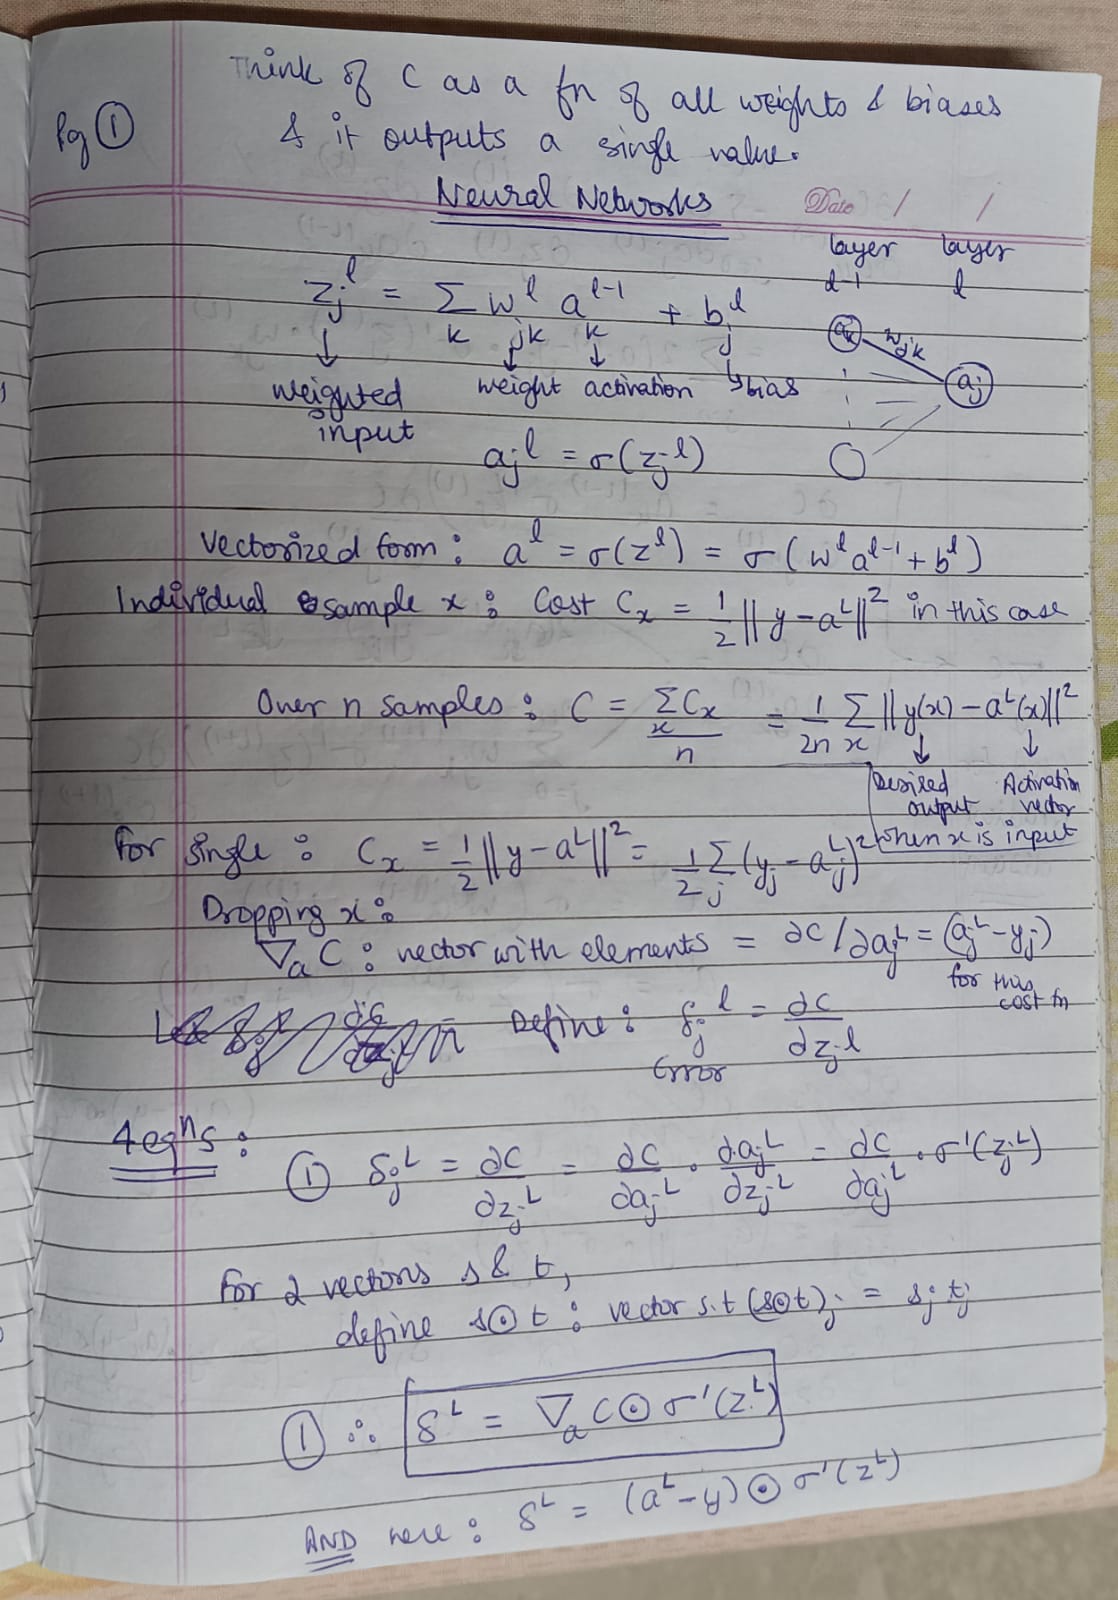 Think of C as a fn of all weights & biases
Pg ① & it outputs a single value.
Neural Networks
Date / /
layer l-1 layer l
z_j^l = Σ_k w_jk^l a_k^{l-1} + b_j^l
a_k w_jk a_j
↓ weighted input ↓ weight ↓ activation ↳ bias
a_j^l = σ(z_j^l)
Vectorized form : a^l = σ(z^l) = σ(w^l a^{l-1} + b^l)
Individual sample x : Cost C_x = 1/2 ||y - a^L||^2 in this case
Over n samples : C = Σ_x C_x / n = 1/2n Σ_x ||y(x) - a^L(x)||^2
↓ Desired output ↓ Activation vector
when x is input
For single : C_x = 1/2 ||y - a^L||^2 = 1/2 Σ_j (y_j - a_j^L)^2
Dropping x :
∇_a C : vector with elements = ∂C/∂a_j^L = (a_j^L - y_j)
for this cost fn
Define : δ_j^l = ∂C/∂z_j^l
Error
4 eqⁿs :
① δ_j^L = ∂C/∂z_j^L = ∂C/∂a_j^L . ∂a_j^L/∂z_j^L = ∂C/∂a_j^L . σ'(z_j^L)
For 2 vectors s & t,
define s⊙t : vector s.t (s⊙t)_j = s_j t_j
① ∴ δ^L = ∇_a C ⊙ σ'(z^L)
AND here : δ^L = (a^L - y) ⊙ σ'(z^L)